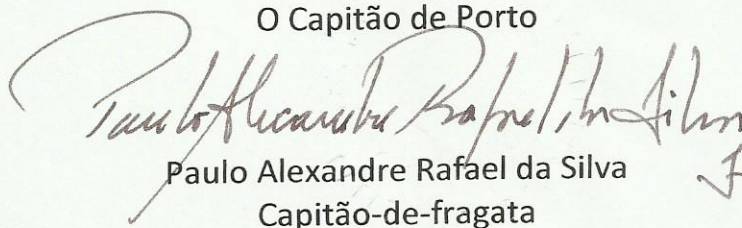 O Capitão de Porto
Paulo Alexandre Rafael da Silva
Paulo Alexandre Rafael da Silva
Capitão-de-fragata